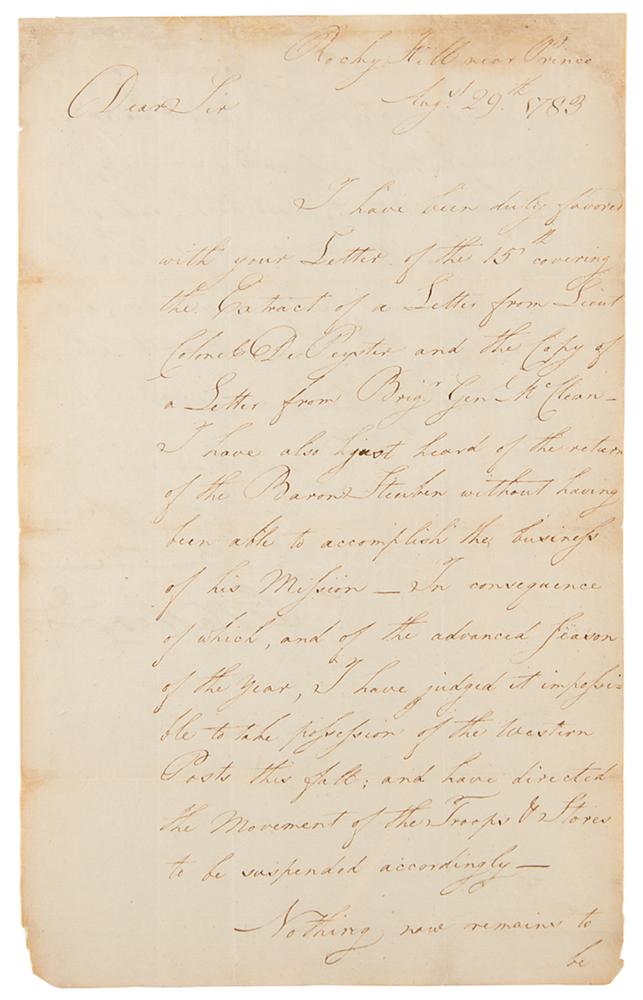 Rocky Hill near Prince
Dear Sir Augst 29th 1783
I have been duly favored
with your Letter of the 15th covering
the Extract of a Letter from Lieut
Colonel De Peyster and the Copy of
a Letter from Brigr Gen McClean —
I have also just heard of the return
of the Baron Steuben without having
been able to accomplish the business
of his Mission — In consequence
of which, and of the advanced Season
of the year, I have judged it impossi=
ble to take possession of the Western
Posts this fall; and have directed
the Movement of the Troops & Stores
to be suspended accordingly —
Nothing now remains to
be